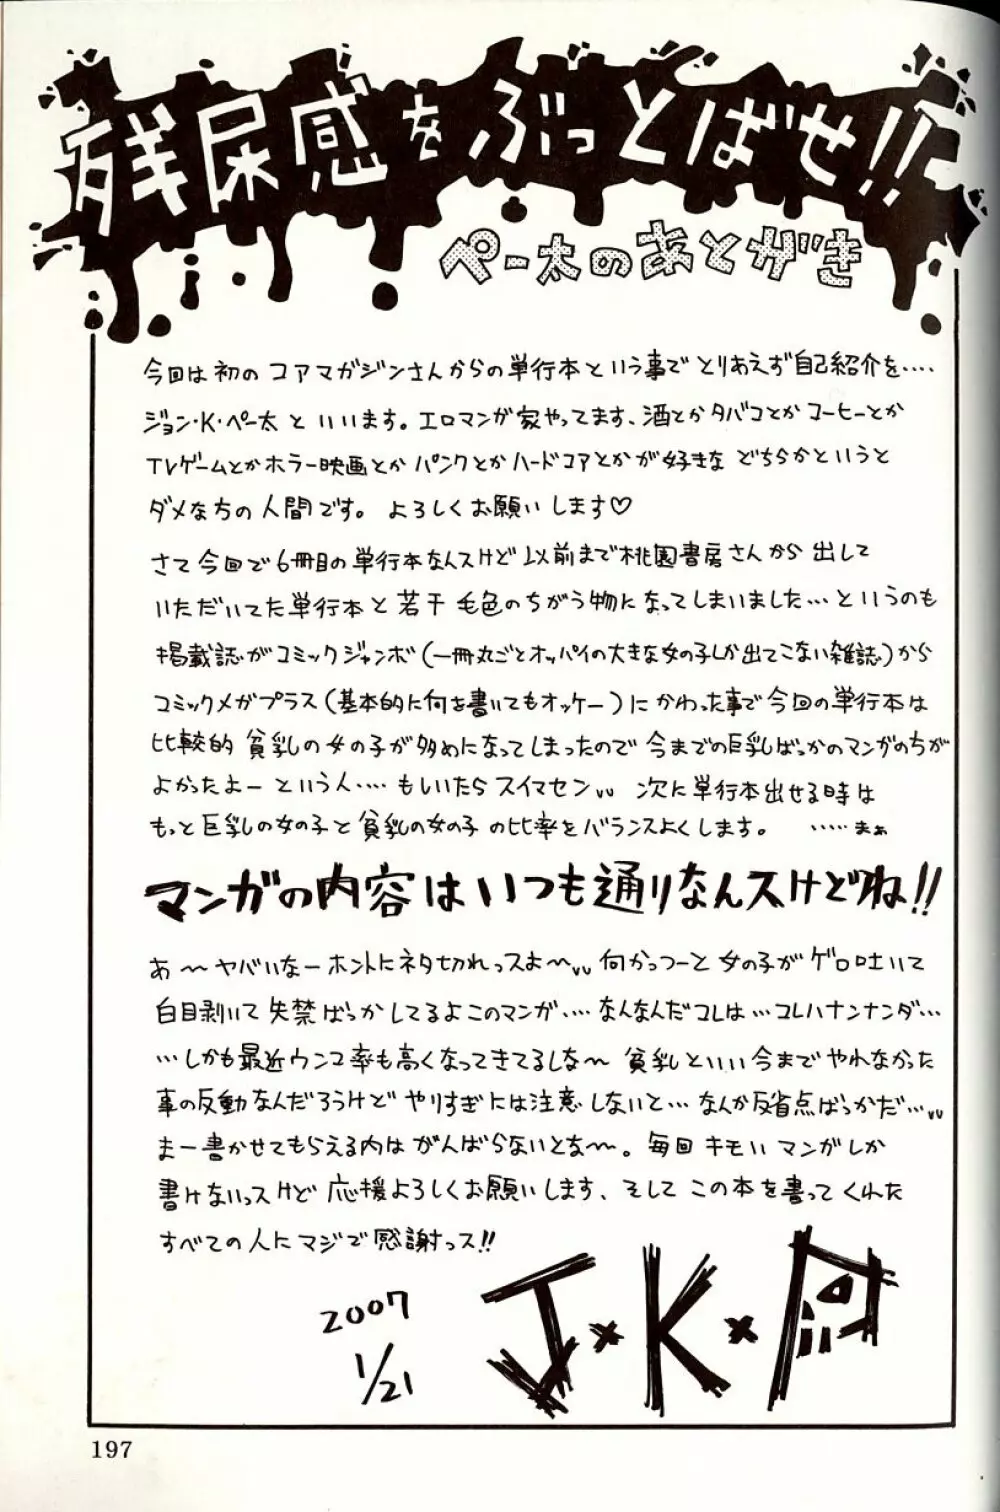 残尿感をぶっとばせ!!
ペー太のあとがき
今回は初のコアマガジンさんからの単行本という事でとりあえず自己紹介を‥‥
ジョン・K・ペー太といいます。エロマンガ家やってます、酒とかタバコとかコーヒーとか
TVゲームとかホラー映画とかパンクとかハードコアとかが好きなどちらかというと
ダメな方の人間です。よろしくお願いします♡
さて今回で6冊目の単行本なんスけど以前まで桃園書房さんから出して
いただいてた単行本と若干毛色のちがう物になってしまいました…というのも
掲載誌がコミックジャンボ(一冊丸ごとオッパイの大きな女の子しか出てこない雑誌)から
コミックメガプラス(基本的に何を書いてもオッケー)にかわった事で今回の単行本は
比較的貧乳の女の子が多めになってしまったので今までの巨乳ばっかのマンガのちが
よかったよーという人‥‥もしいたらスイマセン〃 次に単行本出せる時は
もっと巨乳の女の子と貧乳の女の子の比率をバランスよくします。 ‥‥‥まぁ
マンガの内容はいつも通りなんスけどね!!
あ〜ヤバいなーホントにネタ切れっスよ〜〃何かっつーと女の子がゲロ吐いて
白目剥いて失禁ばっかしてるよこのマンガ‥‥なんなんだコレは…コレハナンナンダ…
…しかも最近ウンコ率も高くなってきてるしな〜貧乳といい今までやれなかった
事の反動なんだろうけどやりすぎには注意しないと…なんか反省点ばっかだ…〃
まー書かせてもらえる内はがんばらないとな〜。毎回キモいマンガしか
書けないっスけど応援よろしくお願いします、そしてこの本を書ってくれた
すべての人にマジで感謝っス!!
2007
1/21
J×K×P
197